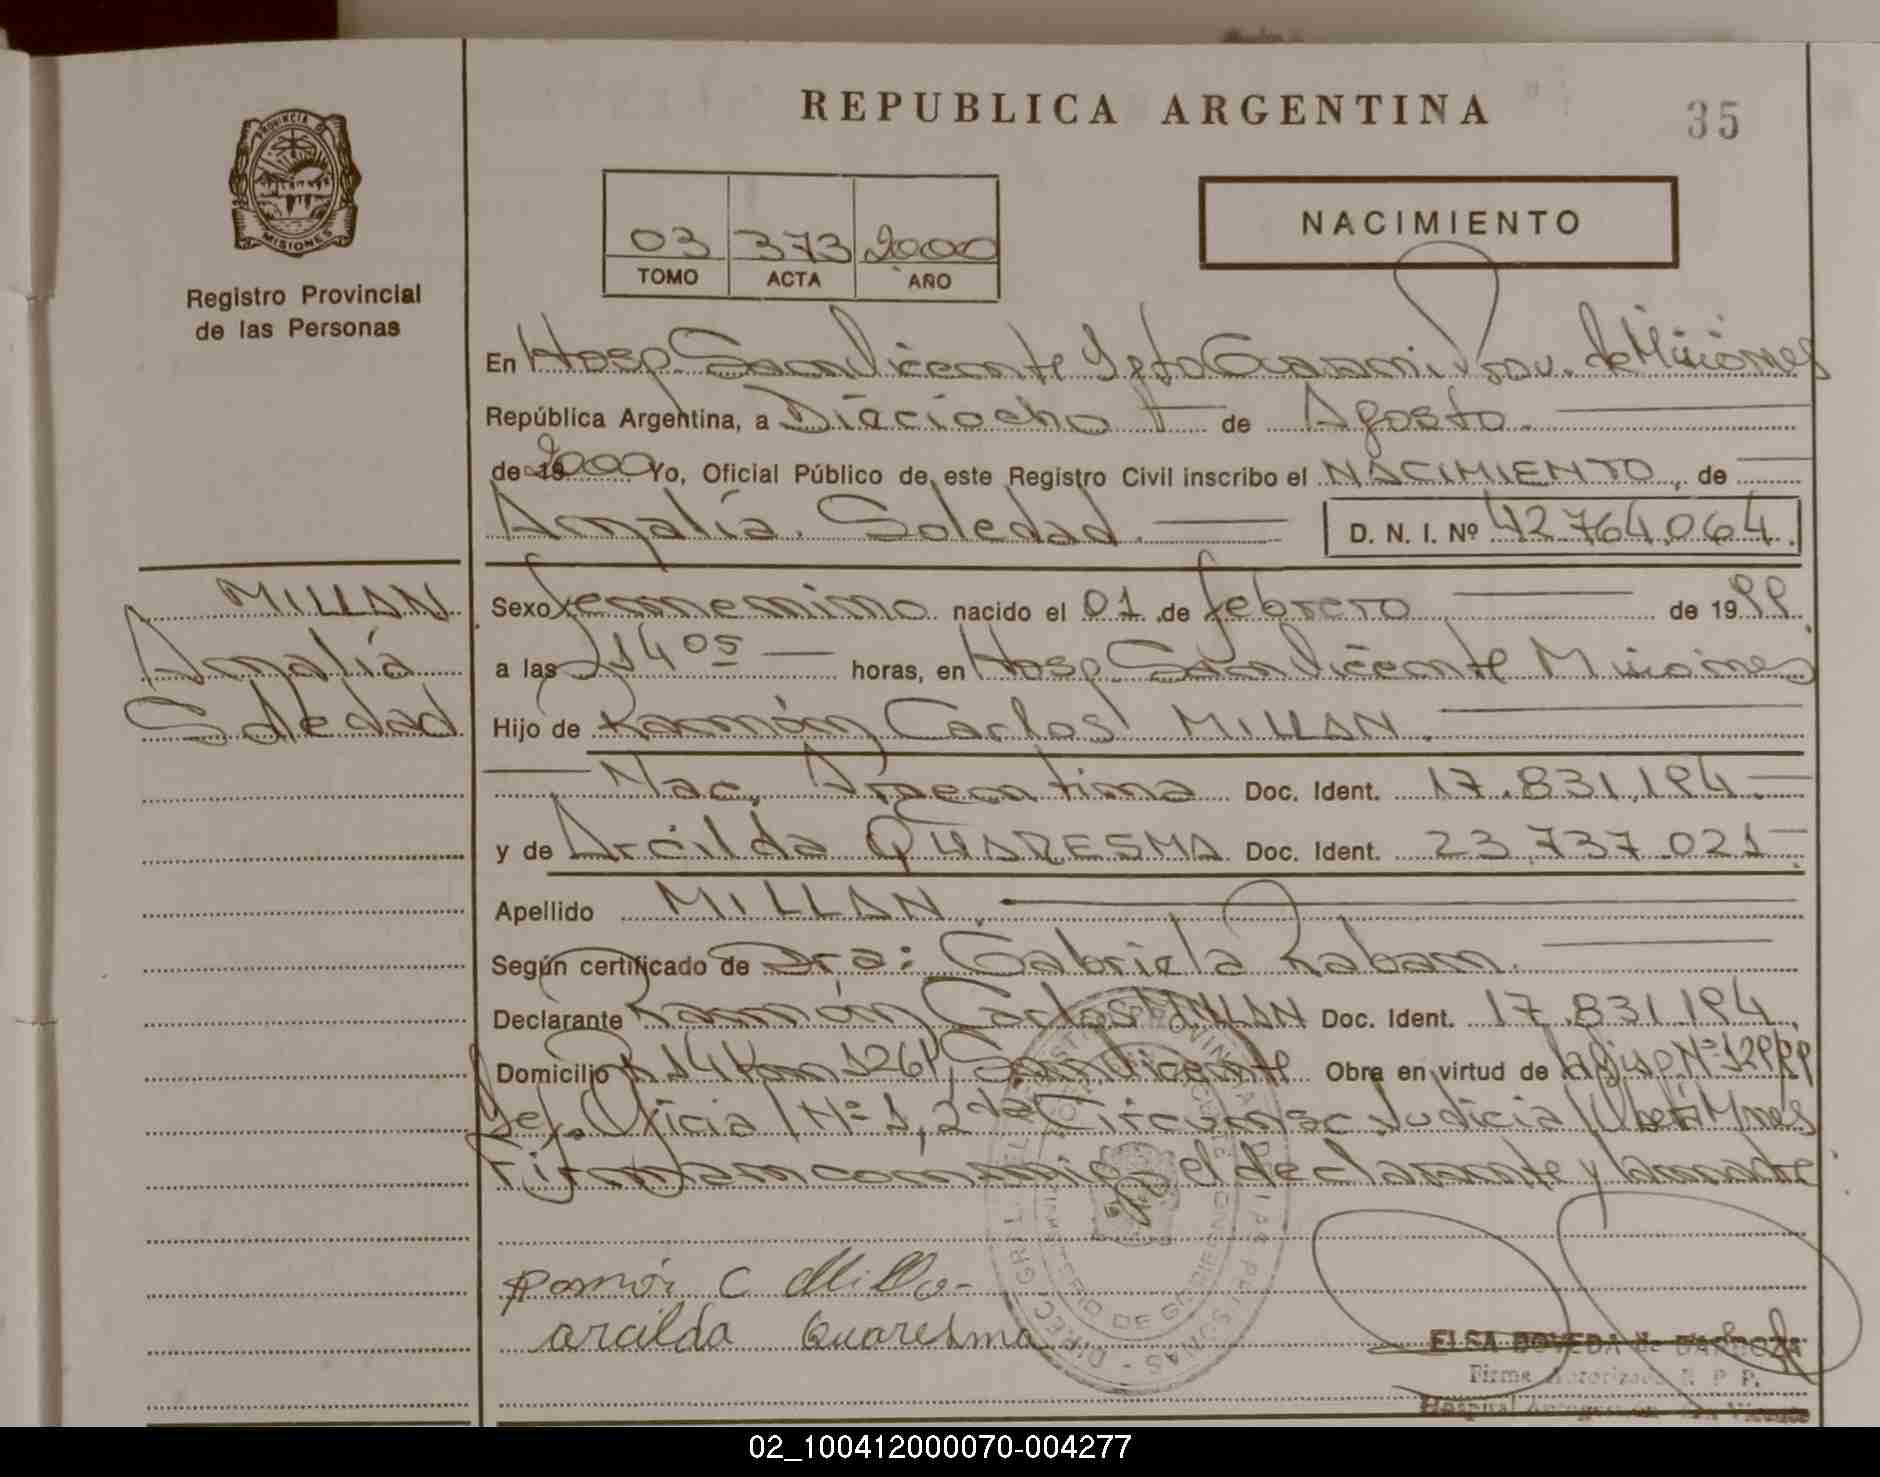 REPUBLICA ARGENTINA
35
PROVINCIA D
MISIONES
Registro Provincial
de las Personas
03 373 2000
TOMO ACTA AÑO
NACIMIENTO
En Hosp. San Vicente Dpto Guarani Prov. de Misiones
República Argentina, a Dieciocho de Agosto.
de 19 2000 Yo, Oficial Público de este Registro Civil inscribo el NACIMIENTO, de
Amalía. Soledad. D. N. I. Nº 42.764.064.
MILLAN
Amalía
Soledad
Sexo femenino nacido el 01 de febrero de 1999
a las 14 05 horas, en Hosp. San Vicente Misiones
Hijo de Ramón Carlos MILLAN.
Nac. Argentina Doc. Ident. 17.831.194.
y de Arcilda QUARESMA Doc. Ident. 23.737.021.
Apellido MILLAN.
Según certificado de Dra: Gabriela Raban.
Declarante Ramón Carlos MILLAN Doc. Ident. 17.831.194.
Domicilio R 14 Km 1261, San Vicente Obra en virtud de la Disp Nº
Def. Oficial Nº 1, 2da Circunsc. Judicial Oberá Mnes
Firman conmigo el declarante y la madre
Ramón C Millan
arcilda Quaresma
ELSA BOVEDA de BARBOZA
Firma Autorizada R. P. P.
Hospital San Vicente
02_100412000070-004277